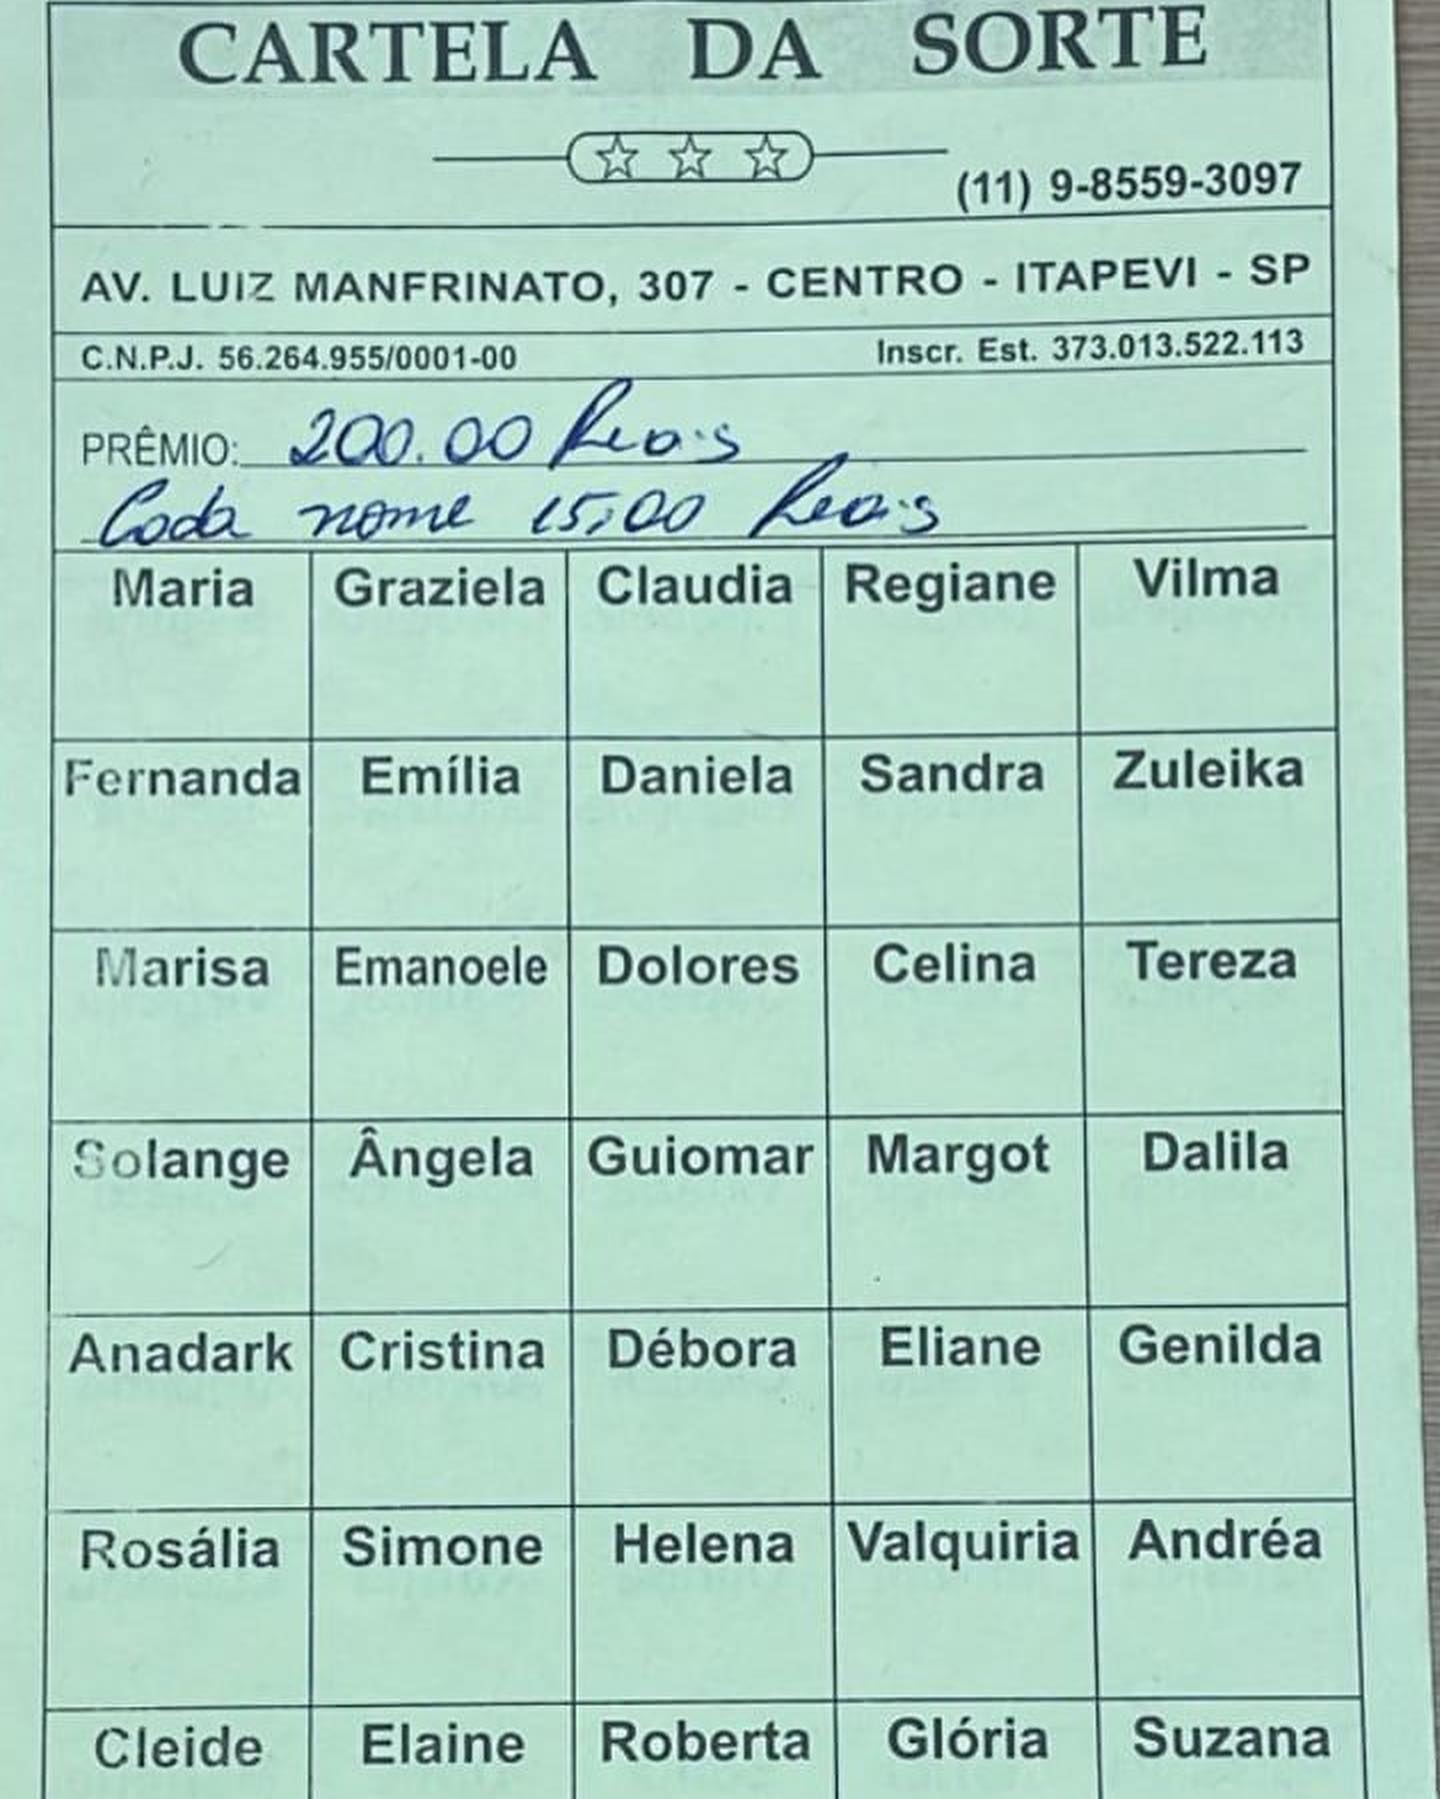 CARTELA DA SORTE
(11) 9-8559-3097
AV. LUIZ MANFRINATO, 307 - CENTRO - ITAPEVI - SP
C.N.P.J. 56.264.955/0001-00 Inscr. Est. 373.013.522.113
PRÊMIO: 200.00 Reais
Cada nome 15,00 Reais
Maria Graziela Claudia Regiane Vilma
Fernanda Emília Daniela Sandra Zuleika
Marisa Emanoele Dolores Celina Tereza
Solange Ângela Guiomar Margot Dalila
Anadark Cristina Débora Eliane Genilda
Rosália Simone Helena Valquiria Andréa
Cleide Elaine Roberta Glória Suzana